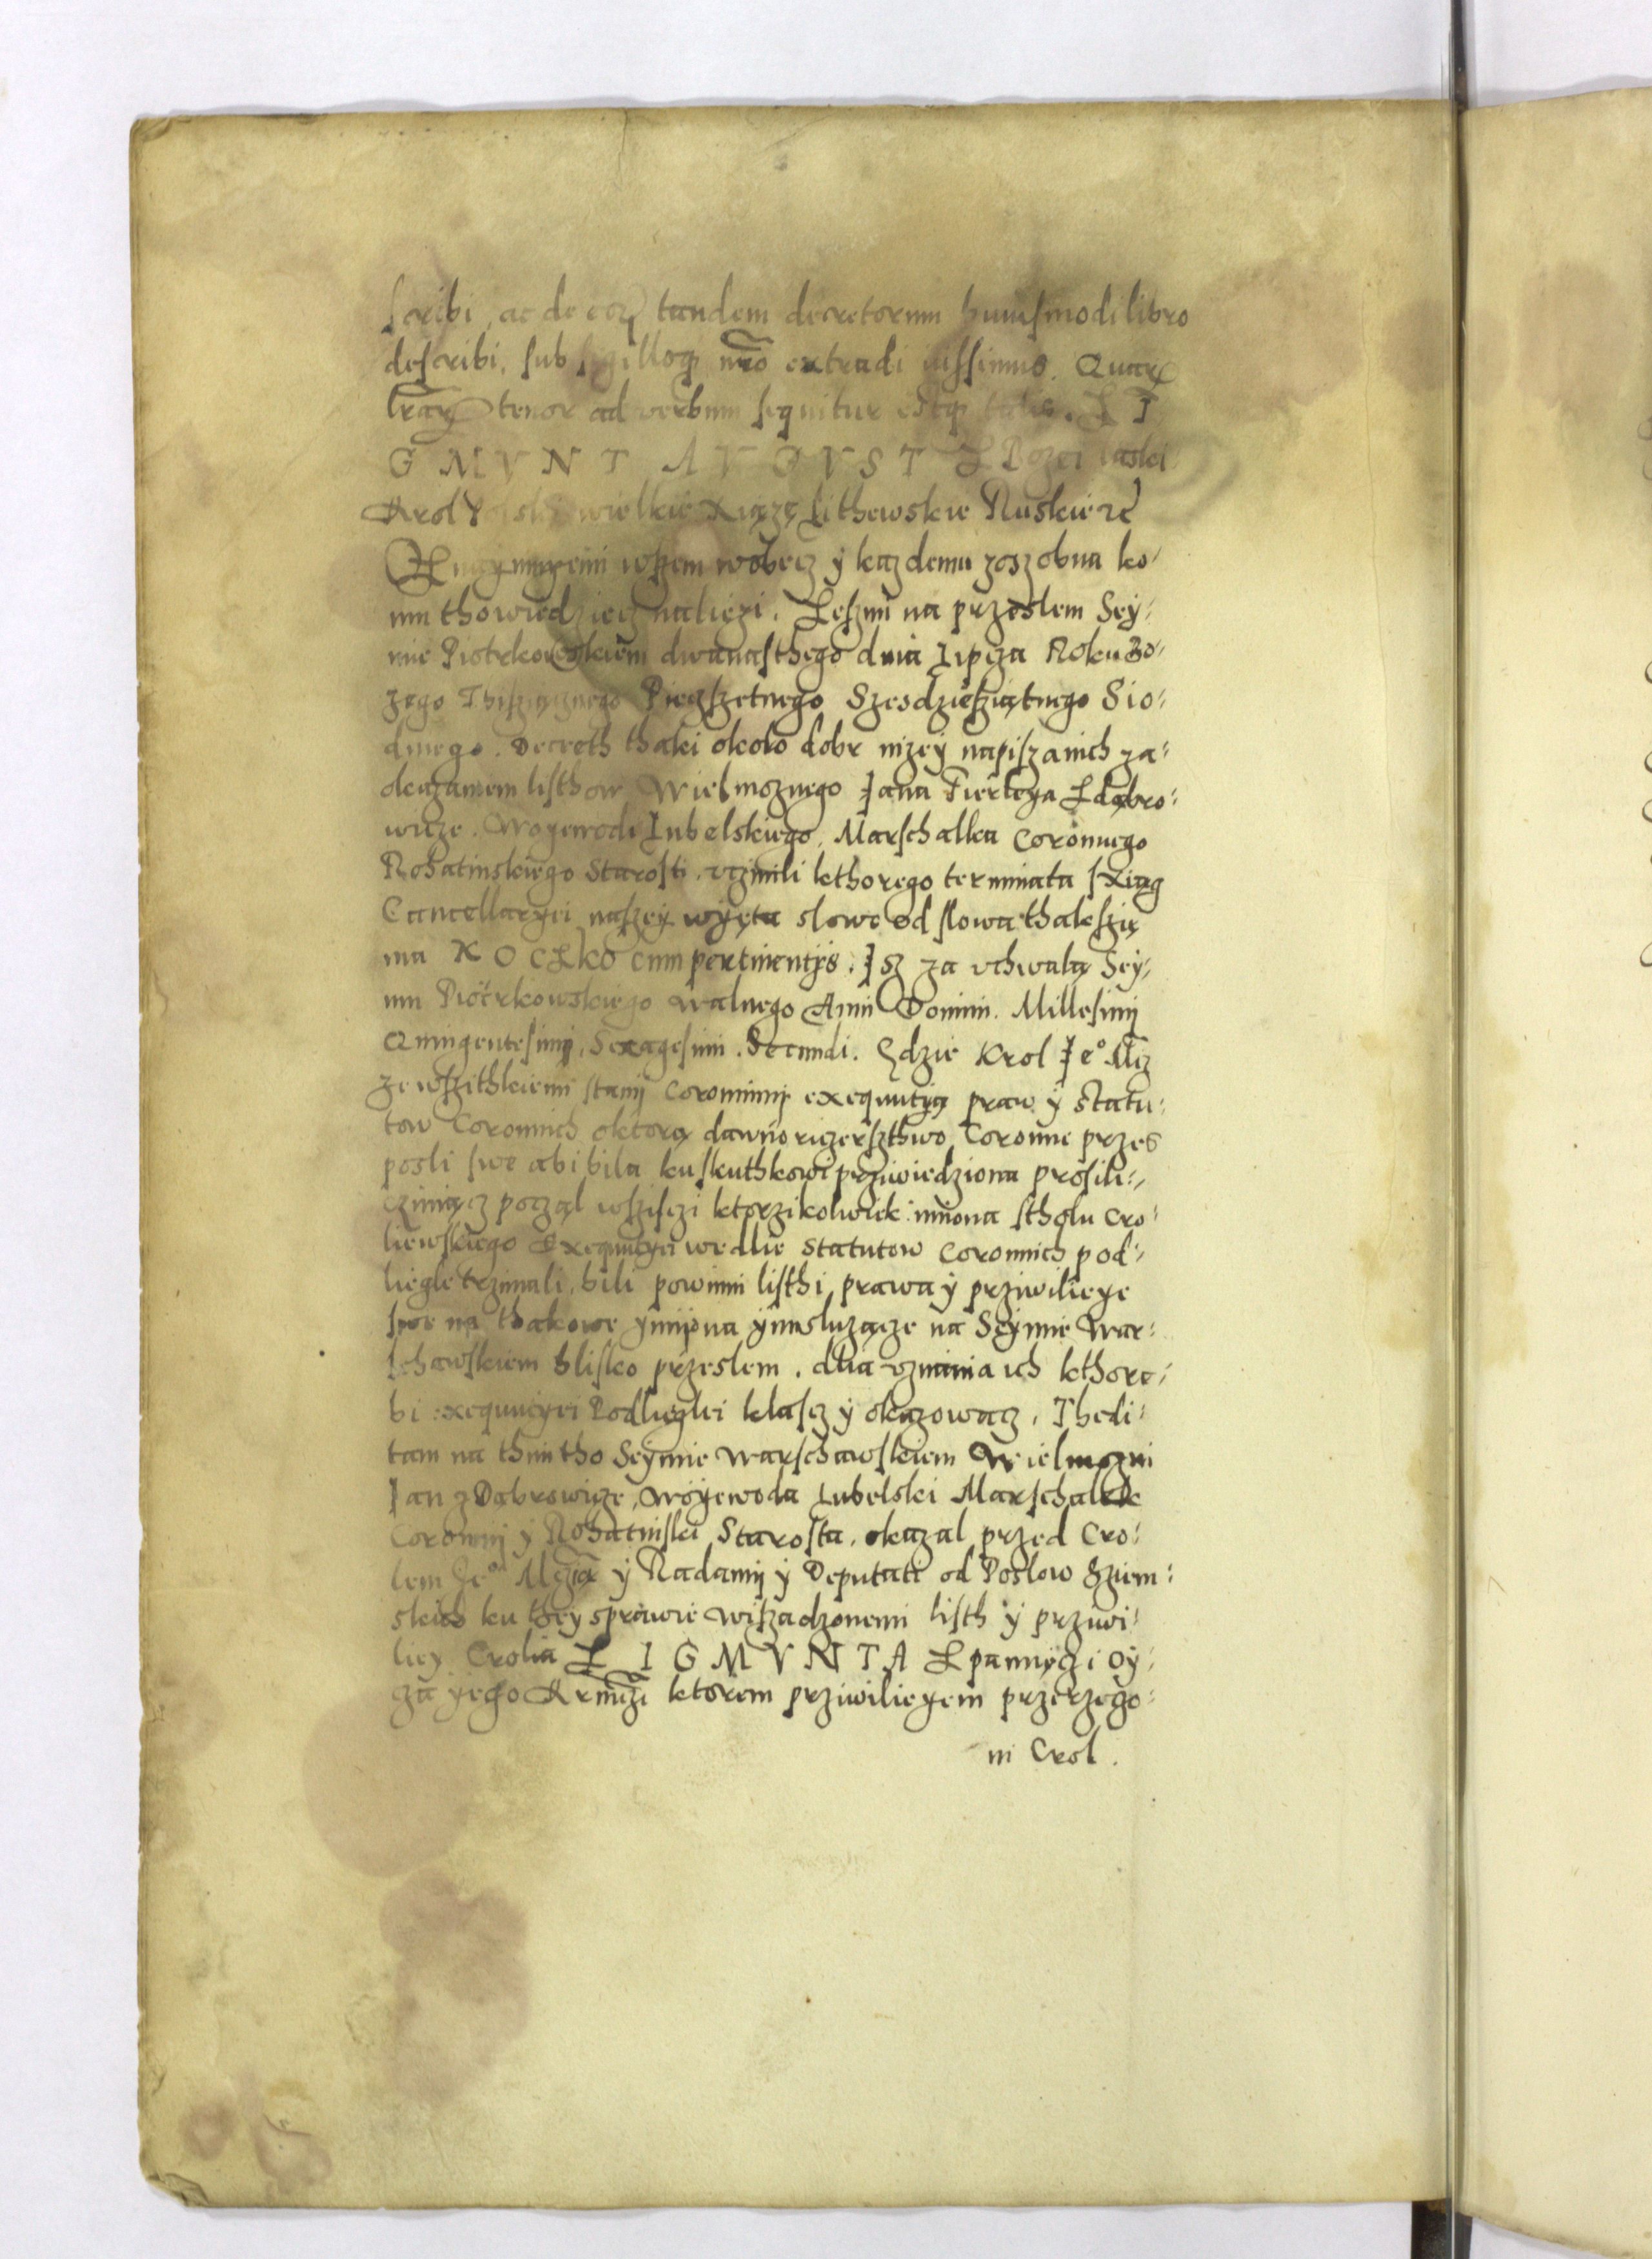 scribi, ac de eorꝫ tandem decretorum huiusmodi libro
describi, sub sigilloqꝫ nr̃o extradi iussimus. Quarꝫ
lrarꝫ tenor ad verbum sequitur estqꝫ talis. Z I
G M V N T A V G V S T Z Bozei laski
Krol Polski wielkie Xiązę Lithewskie Ruskie ꝛc̃
Oznaymuyemi wszem wobecz ÿ kazdemu zoszobna ko⸗
mu tho wiedziecz naliezi. Zeszmi na przeslem Seÿ⸗
mie Piotrkowskiem dwanasthego dnia Lipcza Roku Bo⸗
zego Thisziącznego Pięczsetnego Szesdziesziątnego Sio⸗
dmego. Decreth thaki około dobr nizeÿ napiszanich za⸗
okazanem listhow Wielmoznego Jana Fierleya Z dąbro⸗
wicze. Woyewodi Lubelskiego, Marschalka Coronnego
Rohatinskiego Starosti, vczinili kthorego terminata s Xiąg
Cancellaryei naszey wÿęta slowo od slowa thak szię
ma K O CZKO cum pertinentÿs. Jsz za vchwałą Seÿ⸗
mu Piotrkowskiego walnego Anni Domini. Millesimi
Quingentesimi, Sexagesimi. Secundi. Gdzie Krol Je° Mcz
ze wszithkiemi stanÿ Coronnimi exequutią praw ÿ statu⸗
tow Coronnich oktorą dawno riczersthwo Coronne przes
posli swe abi bila ku skuthkowi prziwiedziona prosili⸗
cziniącz począl wszisczi ktorzikolwiek imiona stholu Cro⸗
liewskiego Exequutyei wedlie Statutow Coronnich pod⸗
liegle trzimali, bili powinni listhi prawa ÿ prziwilieye
swe na thakowe ÿmiona ÿm sluzącze na Seÿmie War⸗
schawskiem blisko przeslem. dlia vznania ich kthore⸗
bi exequucyei Podliegłei klascz ÿ okazowacz, Thedi⸗
tam na thim tho Seÿmie Warschawskiem Wielmozni
Jan z Dąbrowicze, Woÿewoda Lubelski Marschalek
Coronnÿ ÿ Rohatinski Starosta, okazal przed Cro⸗
lem Je° Mczią ÿ Radamÿ ÿ Deputati od Poslow Sziem⸗
skich ku they sprawie wisadzonemi listh ÿ prziwi⸗
liey Crolia Z I G M V N T A Z pamięczi Oÿ⸗
cza ÿego Kr mczi ktorem prziwilieyem przerzego⸗
ni Crol.